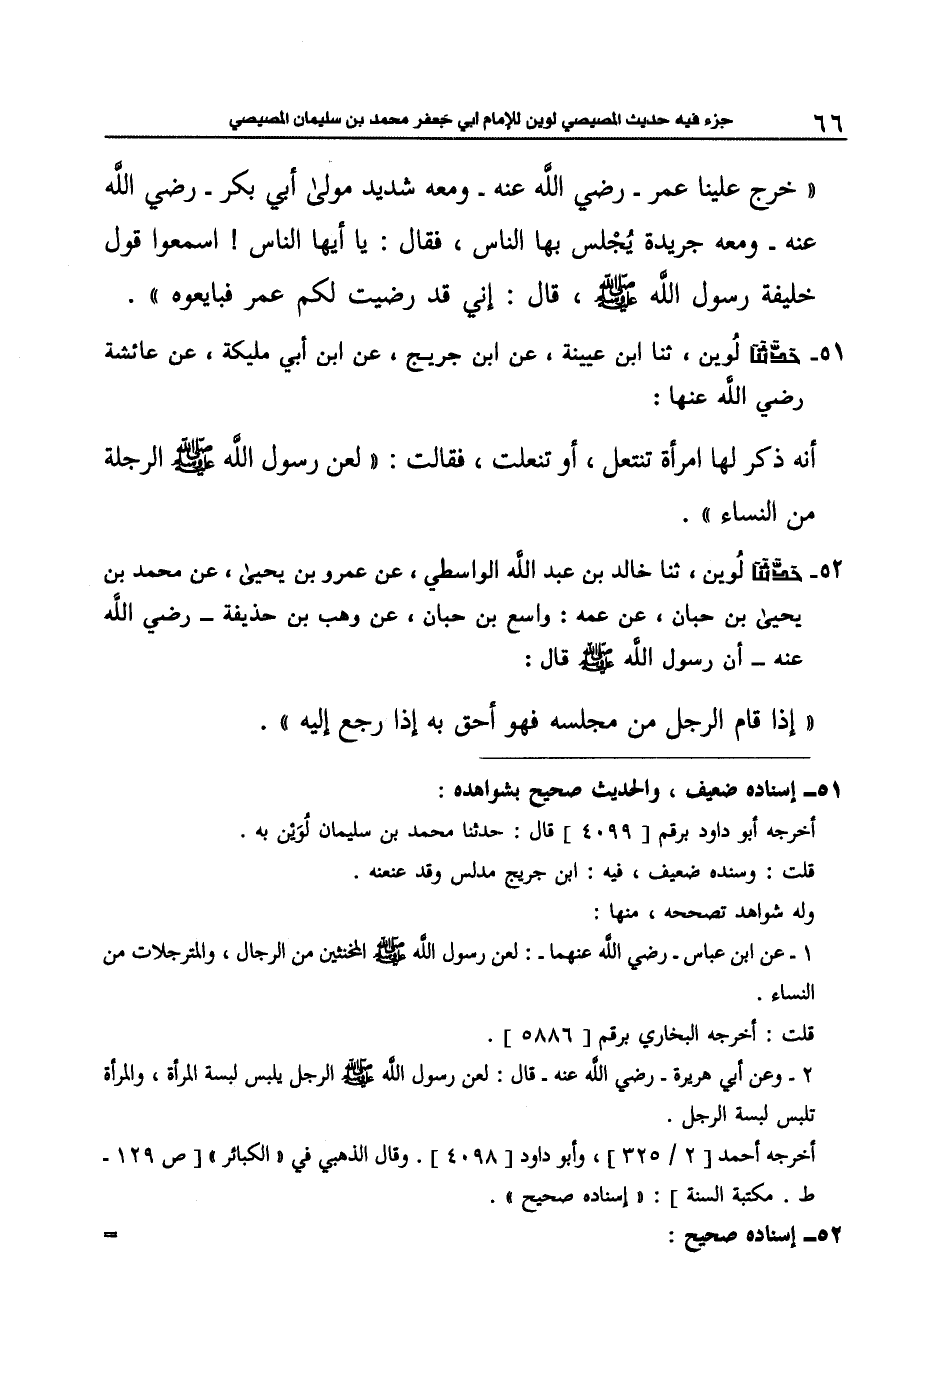 ٦٦ جزء فيه حديث المصيصي لوين للإمام أبي جعفر محمد بن سليمان المصيصي
« خرج علينا عمر ـ رضي اللَّه عنه ـ ومعه شديد مولىٰ أبي بكر ـ رضي اللَّه
عنه ـ ومعه جريدة يُجْلس بها الناس ، فقال : يا أيها الناس ! اسمعوا قول
خليفة رسول اللَّه ﷺ ، قال : إني قد رضيت لكم عمر فبايعوه » .
٥١ـ حدثنا لُوين ، ثنا ابن عيينة ، عن ابن جريج ، عن ابن أبي مليكة ، عن عائشة
رضي اللَّه عنها :
أنه ذكر لها امرأة تنتعل ، أو تنعلت ، فقالت : « لعن رسول اللَّه ﷺ الرجلة
من النساء » .
٥٢ـ حدثنا لُوين ، ثنا خالد بن عبد اللَّه الواسطي ، عن عمرو بن يحيىٰ ، عن محمد بن
يحيىٰ بن حبان ، عن عمه : واسع بن حبان ، عن وهب بن حذيفة ـ رضي اللَّه
عنه ـ أن رسول اللَّه ﷺ قال :
« إذا قام الرجل من مجلسه فهو أحق به إذا رجع إليه » .
٥١ـ إسناده ضعيف ، والحديث صحيح بشواهده :
أخرجه أبو داود برقم [ ٤٠٩٩ ] قال : حدثنا محمد بن سليمان لُوَيْن به .
قلت : وسنده ضعيف ، فيه : ابن جريج مدلس وقد عنعنه .
وله شواهد تصححه ، منها :
١ ـ عن ابن عباس ـ رضي اللَّه عنهما ـ : لعن رسول اللَّه ﷺ المخنثين من الرجال ، والمترجلات من
النساء .
قلت : أخرجه البخاري برقم [ ٥٨٨٦ ] .
٢ ـ وعن أبي هريرة ـ رضي اللَّه عنه ـ قال : لعن رسول اللَّه ﷺ الرجل يلبس لبسة المرأة ، والمرأة
تلبس لبسة الرجل .
أخرجه أحمد [ ٢ / ٣٢٥ ] ، وأبو داود [ ٤٠٩٨ ] . وقال الذهبي في « الكبائر » [ ص ١٢٩ ـ
ط . مكتبة السنة ] : « إسناده صحيح » .
٥٢ـ إسناده صحيح : =